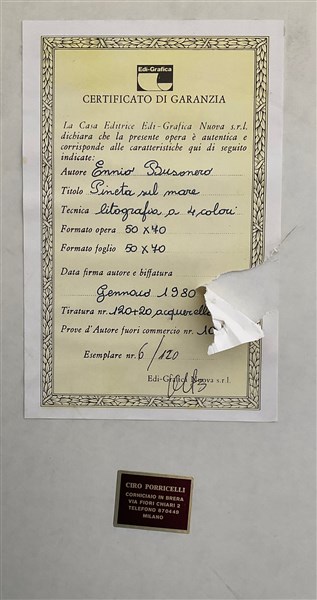 Edi-Grafica
CERTIFICATO DI GARANZIA
La Casa Editrice Edi-Grafica Nuova s.r.l.
dichiara che la presente opera è autentica e
corrisponde alle caratteristiche qui di seguito
indicate:
Autore Ennio Busonero
Titolo Pineta sul mare
Tecnica litografia a 4 colori
Formato opera 50 x 70
Formato foglio 50 x 70
Data firma autore e biffatura
Gennaio 1980
Tiratura nr. 120+20 acquerelle
Prove d'Autore fuori commercio nr. 10
Esemplare nr. 6/120
Edi-Grafica Nuova s.r.l.
CIRO PORRICELLI
CORNICIAIO IN BRERA
VIA FIORI CHIARI 2
TELEFONO 870446
MILANO